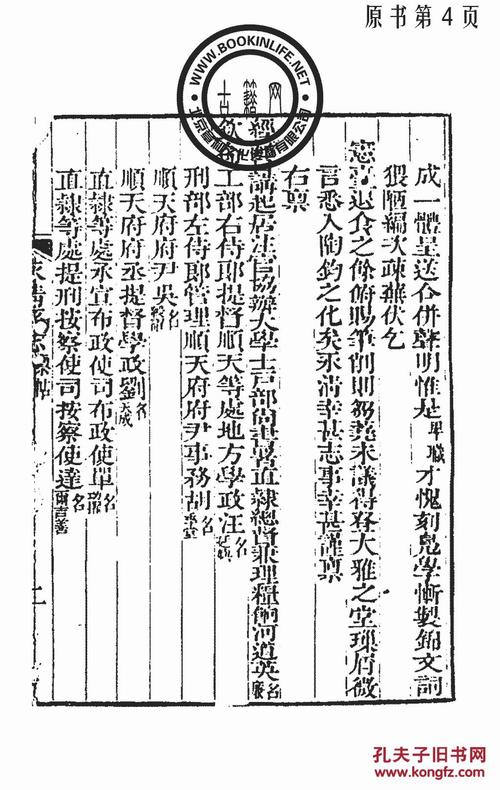 原书第4页
WWW.BOOKINLIFE.NET
成一體呈送合併聲明惟是卑職才愧刻鳧學慚製錦文詞
猥陋編次疎蕪伏乞
憲臺退食之餘俯賜筆削則芻蕘末議得登大雅之堂璅屑微
言悉入陶鈞之化矣永清幸甚志事幸甚謹禀
右禀
講起居注官協辦大學士戸部尚書署直隸總督兼理糧餉河道英名廉
工部右侍郎提督順天等處地方學政汪名
刑部左侍郎管理順天府府尹事務胡名
順天府府尹吳名
順天府府丞提督學政劉名天成
直隸等處承宣布政使司布政使單名
直隸等處提刑按察使司按察使達名爾吉善
永清縣志
二
孔夫子旧书网
www.kongfz.com